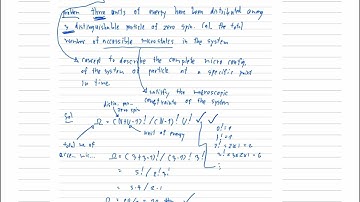 problem Three units of energy have been distributed among
3 distinguishable particle of zero spin. Cal the total
number of accessible microstates in the system
concept to describe the complete micro config
of the system of particle at a specific point
in time.
satisfy the macroscopic
constraints of the system
zero spin
Sol Ω = (N+U-1)! / (N-1)! U! ✓ ✓
unit of energy
total no of
0! = 1
1! = 1
2! = 2x1 = 2
3! = 3x2x1 = 6
Ω = (3+3-1)! / (3-1)! 3!
= 5! / 2! 3!
= 5.4 / 2.1